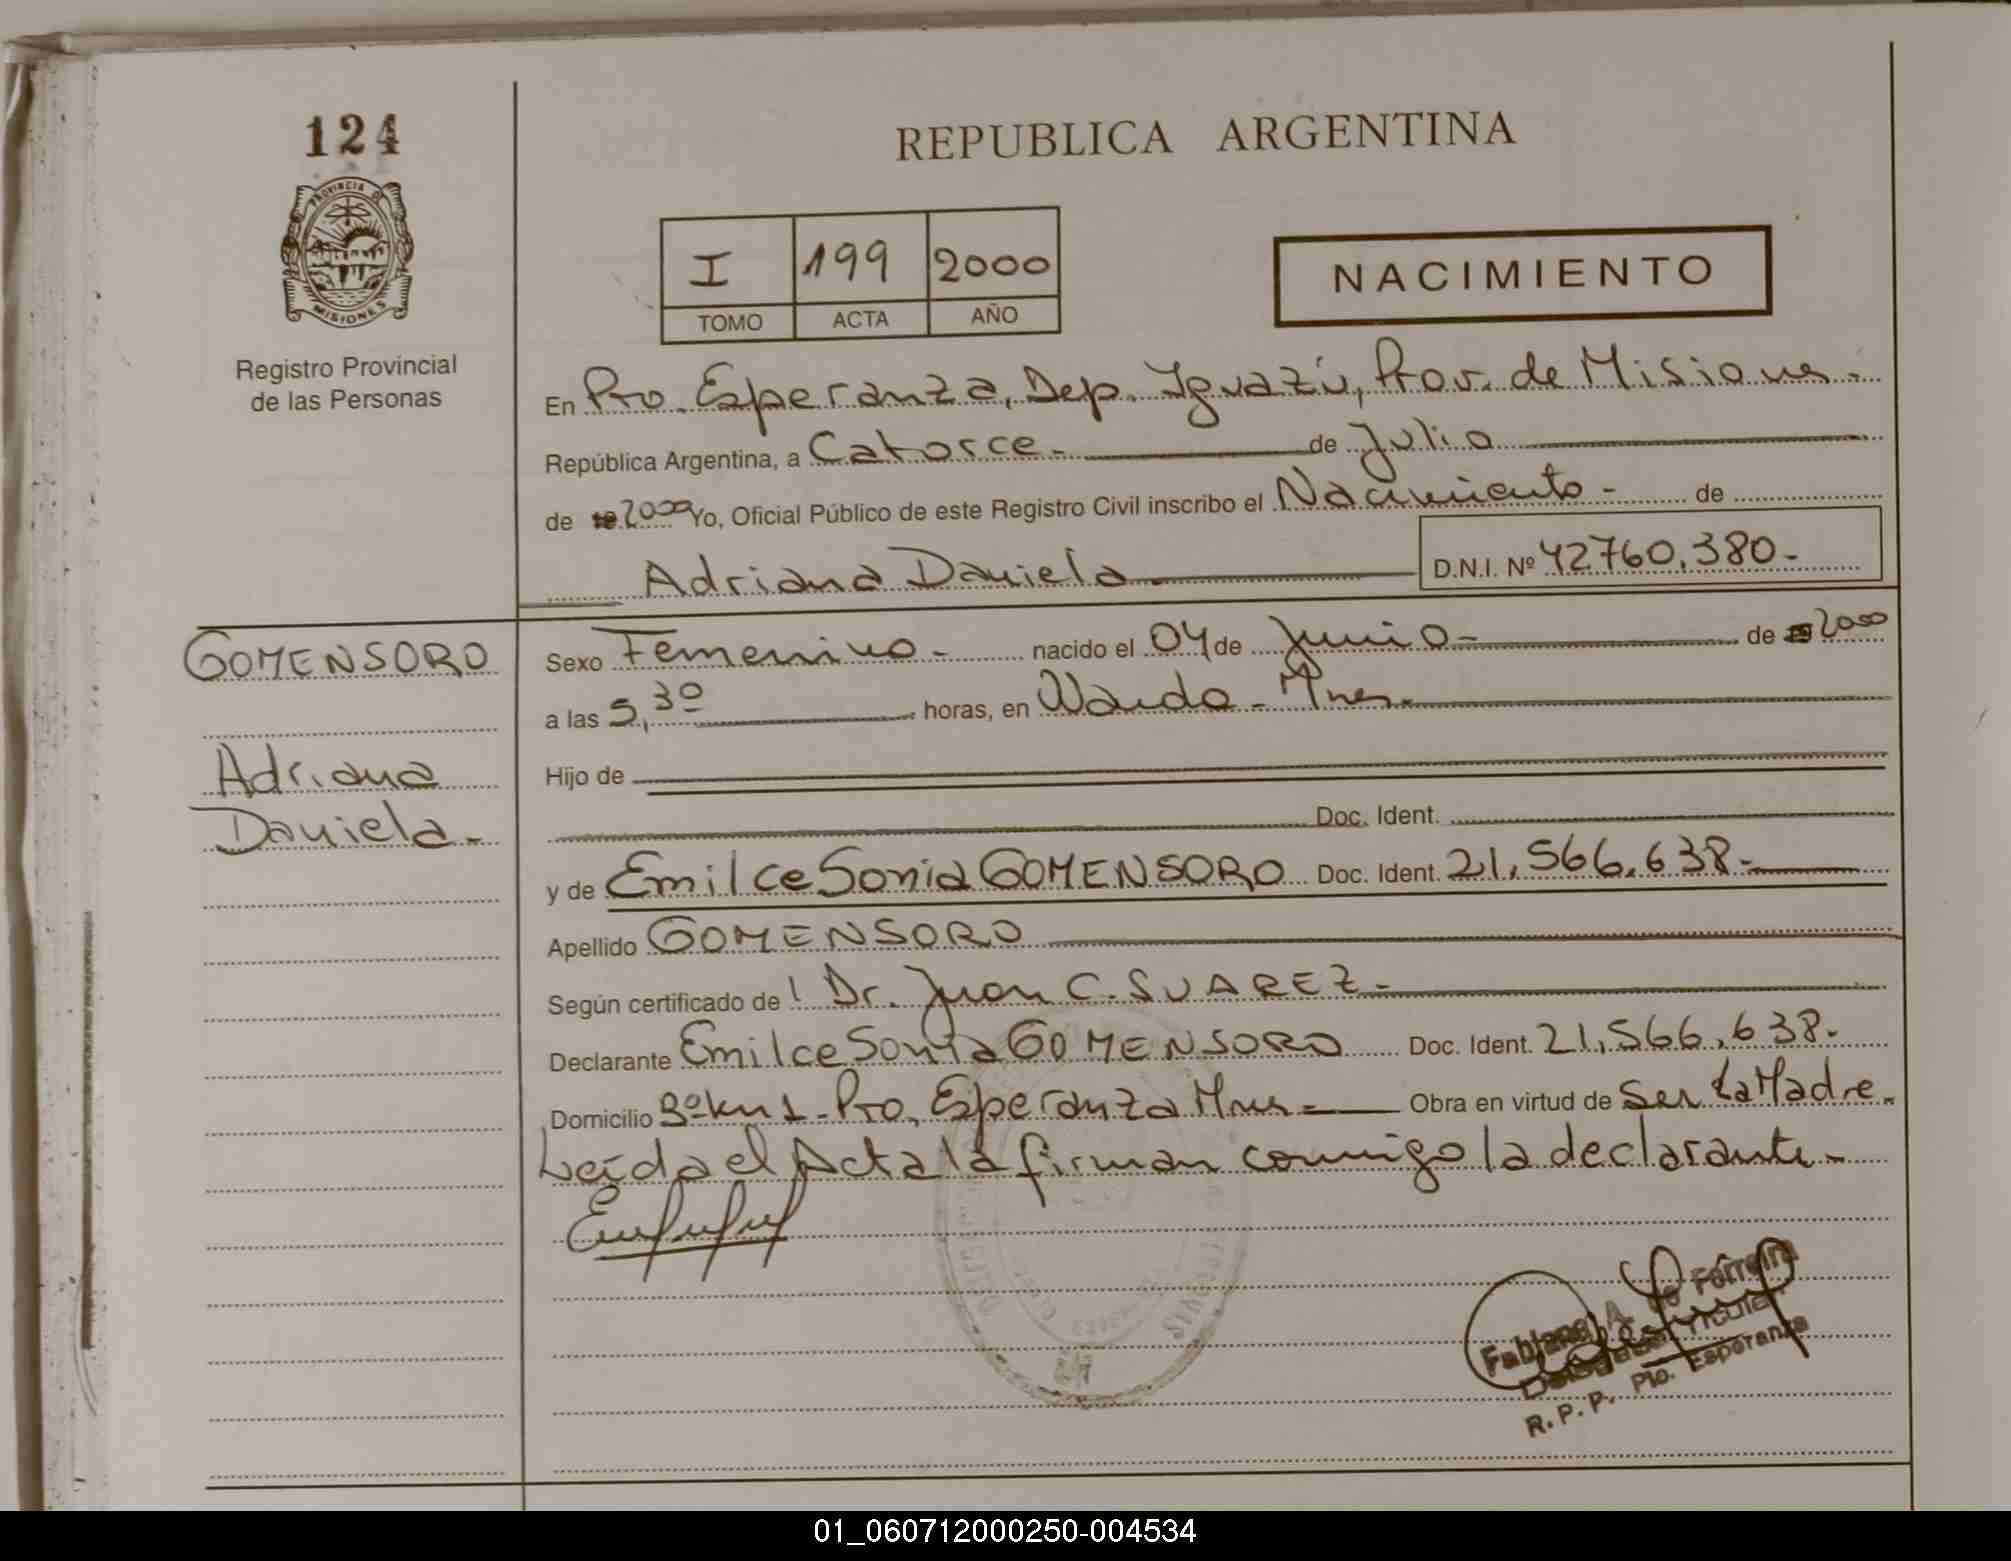 124
PROVINCIA DE
MISIONES
Registro Provincial
de las Personas
REPUBLICA ARGENTINA
I 199 2000
TOMO ACTA AÑO
NACIMIENTO
En Pto. Esperanza, Dep. Iguazú, Prov. de Misiones -
República Argentina, a Catorce - de Julio
de 2000 Yo, Oficial Público de este Registro Civil inscribo el Nacimiento - de
Adriana Daniela - D.N.I. Nº 42760.380 -
GOMENSORO
Adriana
Daniela -
Sexo Femenino - nacido el 04 de Junio - de 2000
a las 5,30 horas, en Wanda - Mnes.
Hijo de
Doc. Ident.
y de Emilce Sonia GOMENSORO Doc. Ident. 21.566.638 -
Apellido GOMENSORO
Según certificado de Dr. Juan C. SUAREZ -
Declarante Emilce Sonia GOMENSORO Doc. Ident. 21.566.638 -
Domicilio Bº km 1 - Pto. Esperanza Mnes - Obra en virtud de Ser La Madre -
Leída el Acta la firman conmigo la declarante -
Fabiana A. de Ferreira
Delegada Titular
R. P. P. Pto. Esperanza
01_060712000250-004534